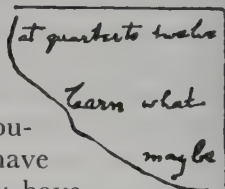 at quarter to twelve
learn what
may be
ou-
have
have